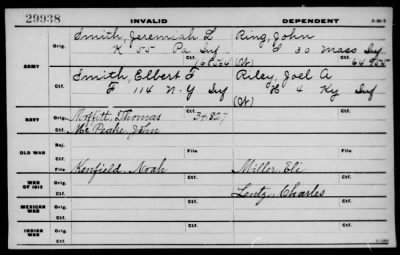 29938 INVALID DEPENDENT
ARMY Orig. Smith, Jeremiah L Ring, John
K 55 Pa Inf I 30 Mass Inf
Ctf. (W)
Orig. Smith, Elbert F Riley, Joel A
F 114 N.Y Inf H 4 Ky Inf
Ctf. (W)
NAVY Orig. Moffitt, Thomas 34827
Ctf. McPeake, John
OLD WAR Rej. File File
Ctf. Kenfield, Noah Miller, Eli
WAR OF 1812 Orig. Lentz, Charles
Ctf.
MEXICAN WAR Orig.
Ctf.
INDIAN WAR Orig.
Ctf.